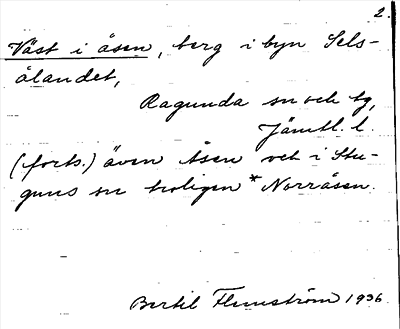 2.
Väst i åsen, berg i byn Sels-
ålandet,
Ragunda sn och tg,
Jämtl. l.
(forts.) även åsen och i Stu-
guns sn troligen *Norråsen.
Bertil Flemström 1936.